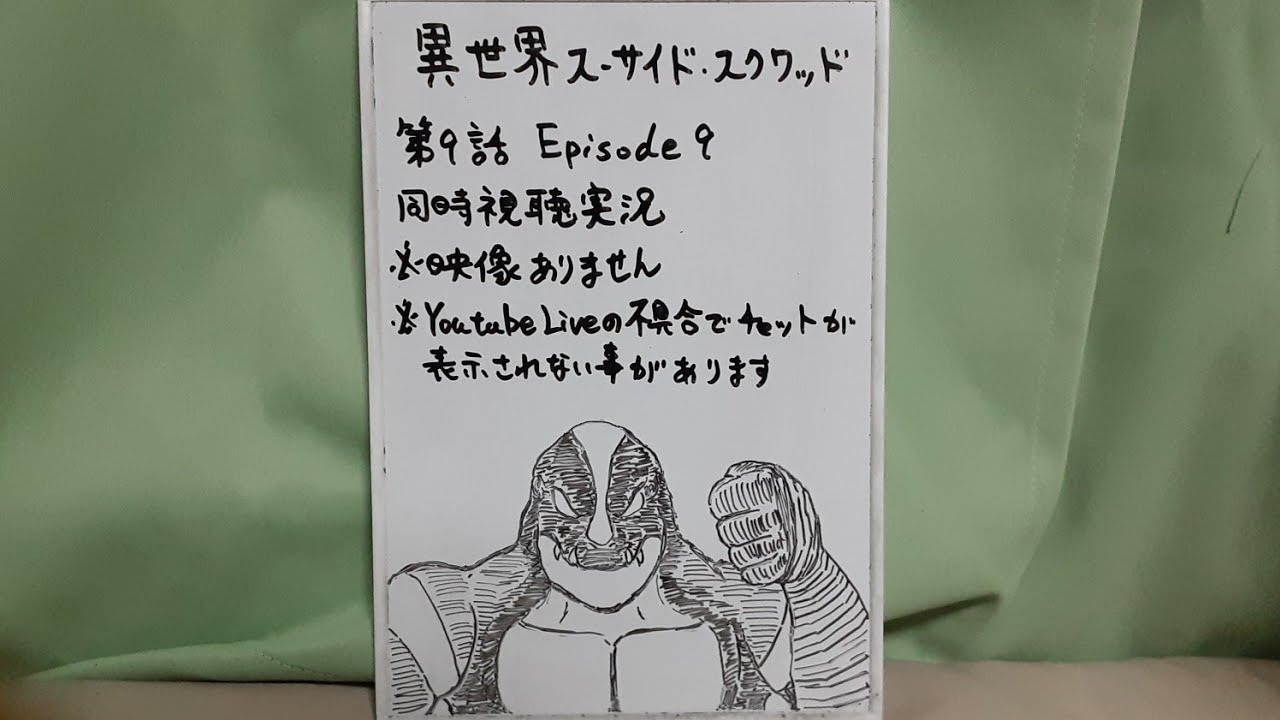 異世界スーサイド・スクワッド
第9話 Episode 9
同時視聴実況
※映像ありません
※Youtube Liveの不具合でチャットが
表示されない事があります